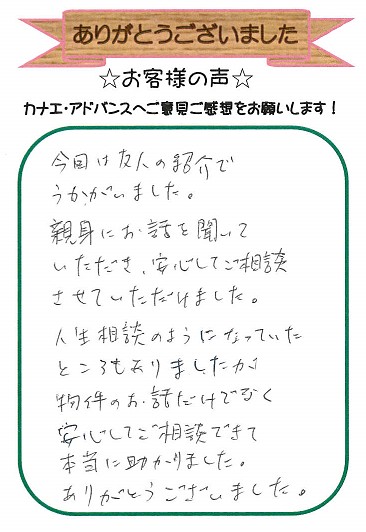 ありがとうございました
☆お客様の声☆
カナエ・アドバンスへご意見ご感想をお願いします！
今回は友人の紹介で
うかがいました。
親身にお話を聞いて
いただき、安心してご相談
させていただけました。
人生相談のようになっていた
ところもありましたが
物件のお話だけでなく
安心してご相談できて
本当に助かりました。
ありがとうございました。